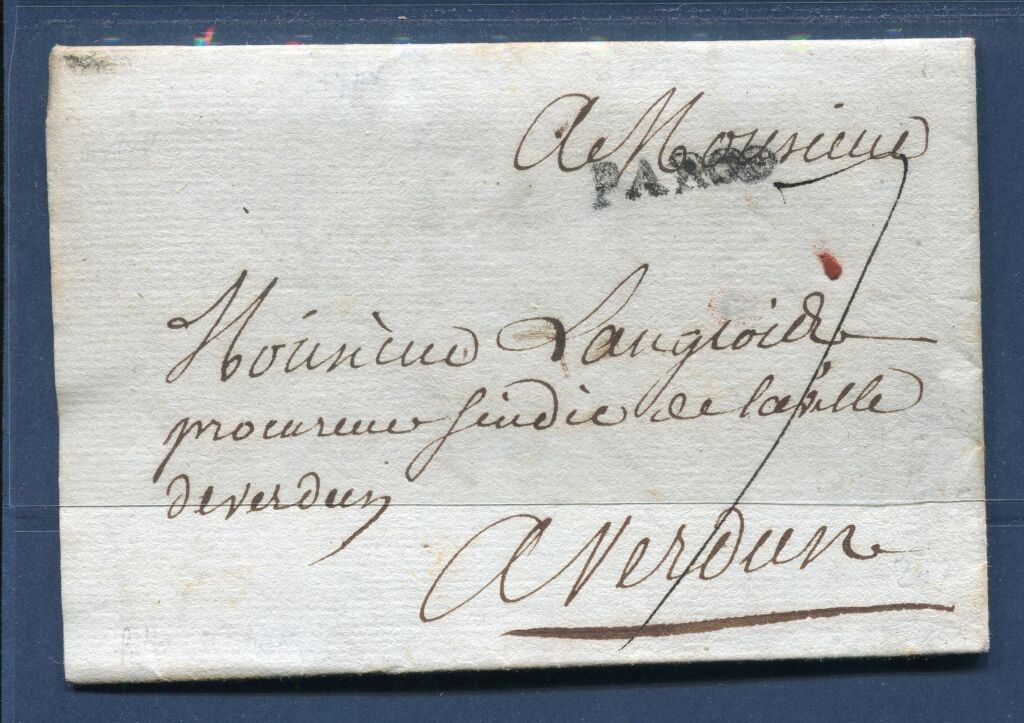 A Monsieur
Monsieur Langloix
procureur sindic de la ville
de verdun
A verdun